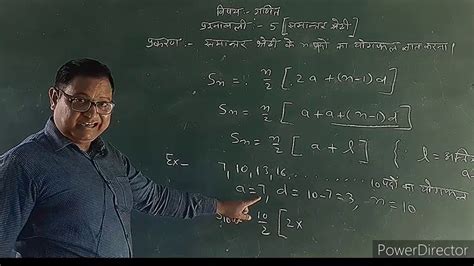 विषय:- गणित
प्रश्नावली:- 5 [समान्तर श्रेढ़ी]
प्रकरण:- समान्तर श्रेढ़ी के n पदों का योगफल ज्ञात करना।
Sn = n/2 [2a + (n-1)d]
Sn = n/2 [a + a + (n-1)d]
Sn = n/2 [a + l] { l =
Ex- 7, 10, 13, 16, ............ 10 पदों का योगफल
a = 7, d = 10-7 = 3, n = 10
10/2 [2x
PowerDirector